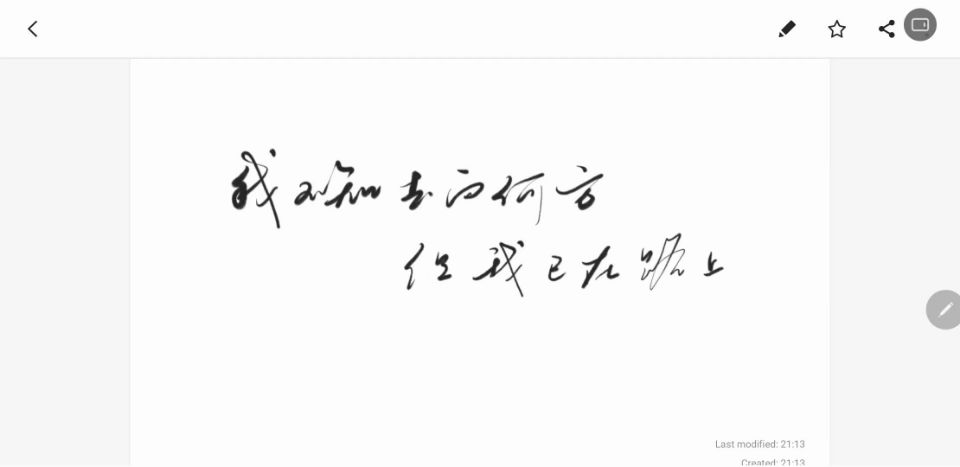 我不知去向何方
但我已在路上
Last modified: 21:13
Created: 21:13